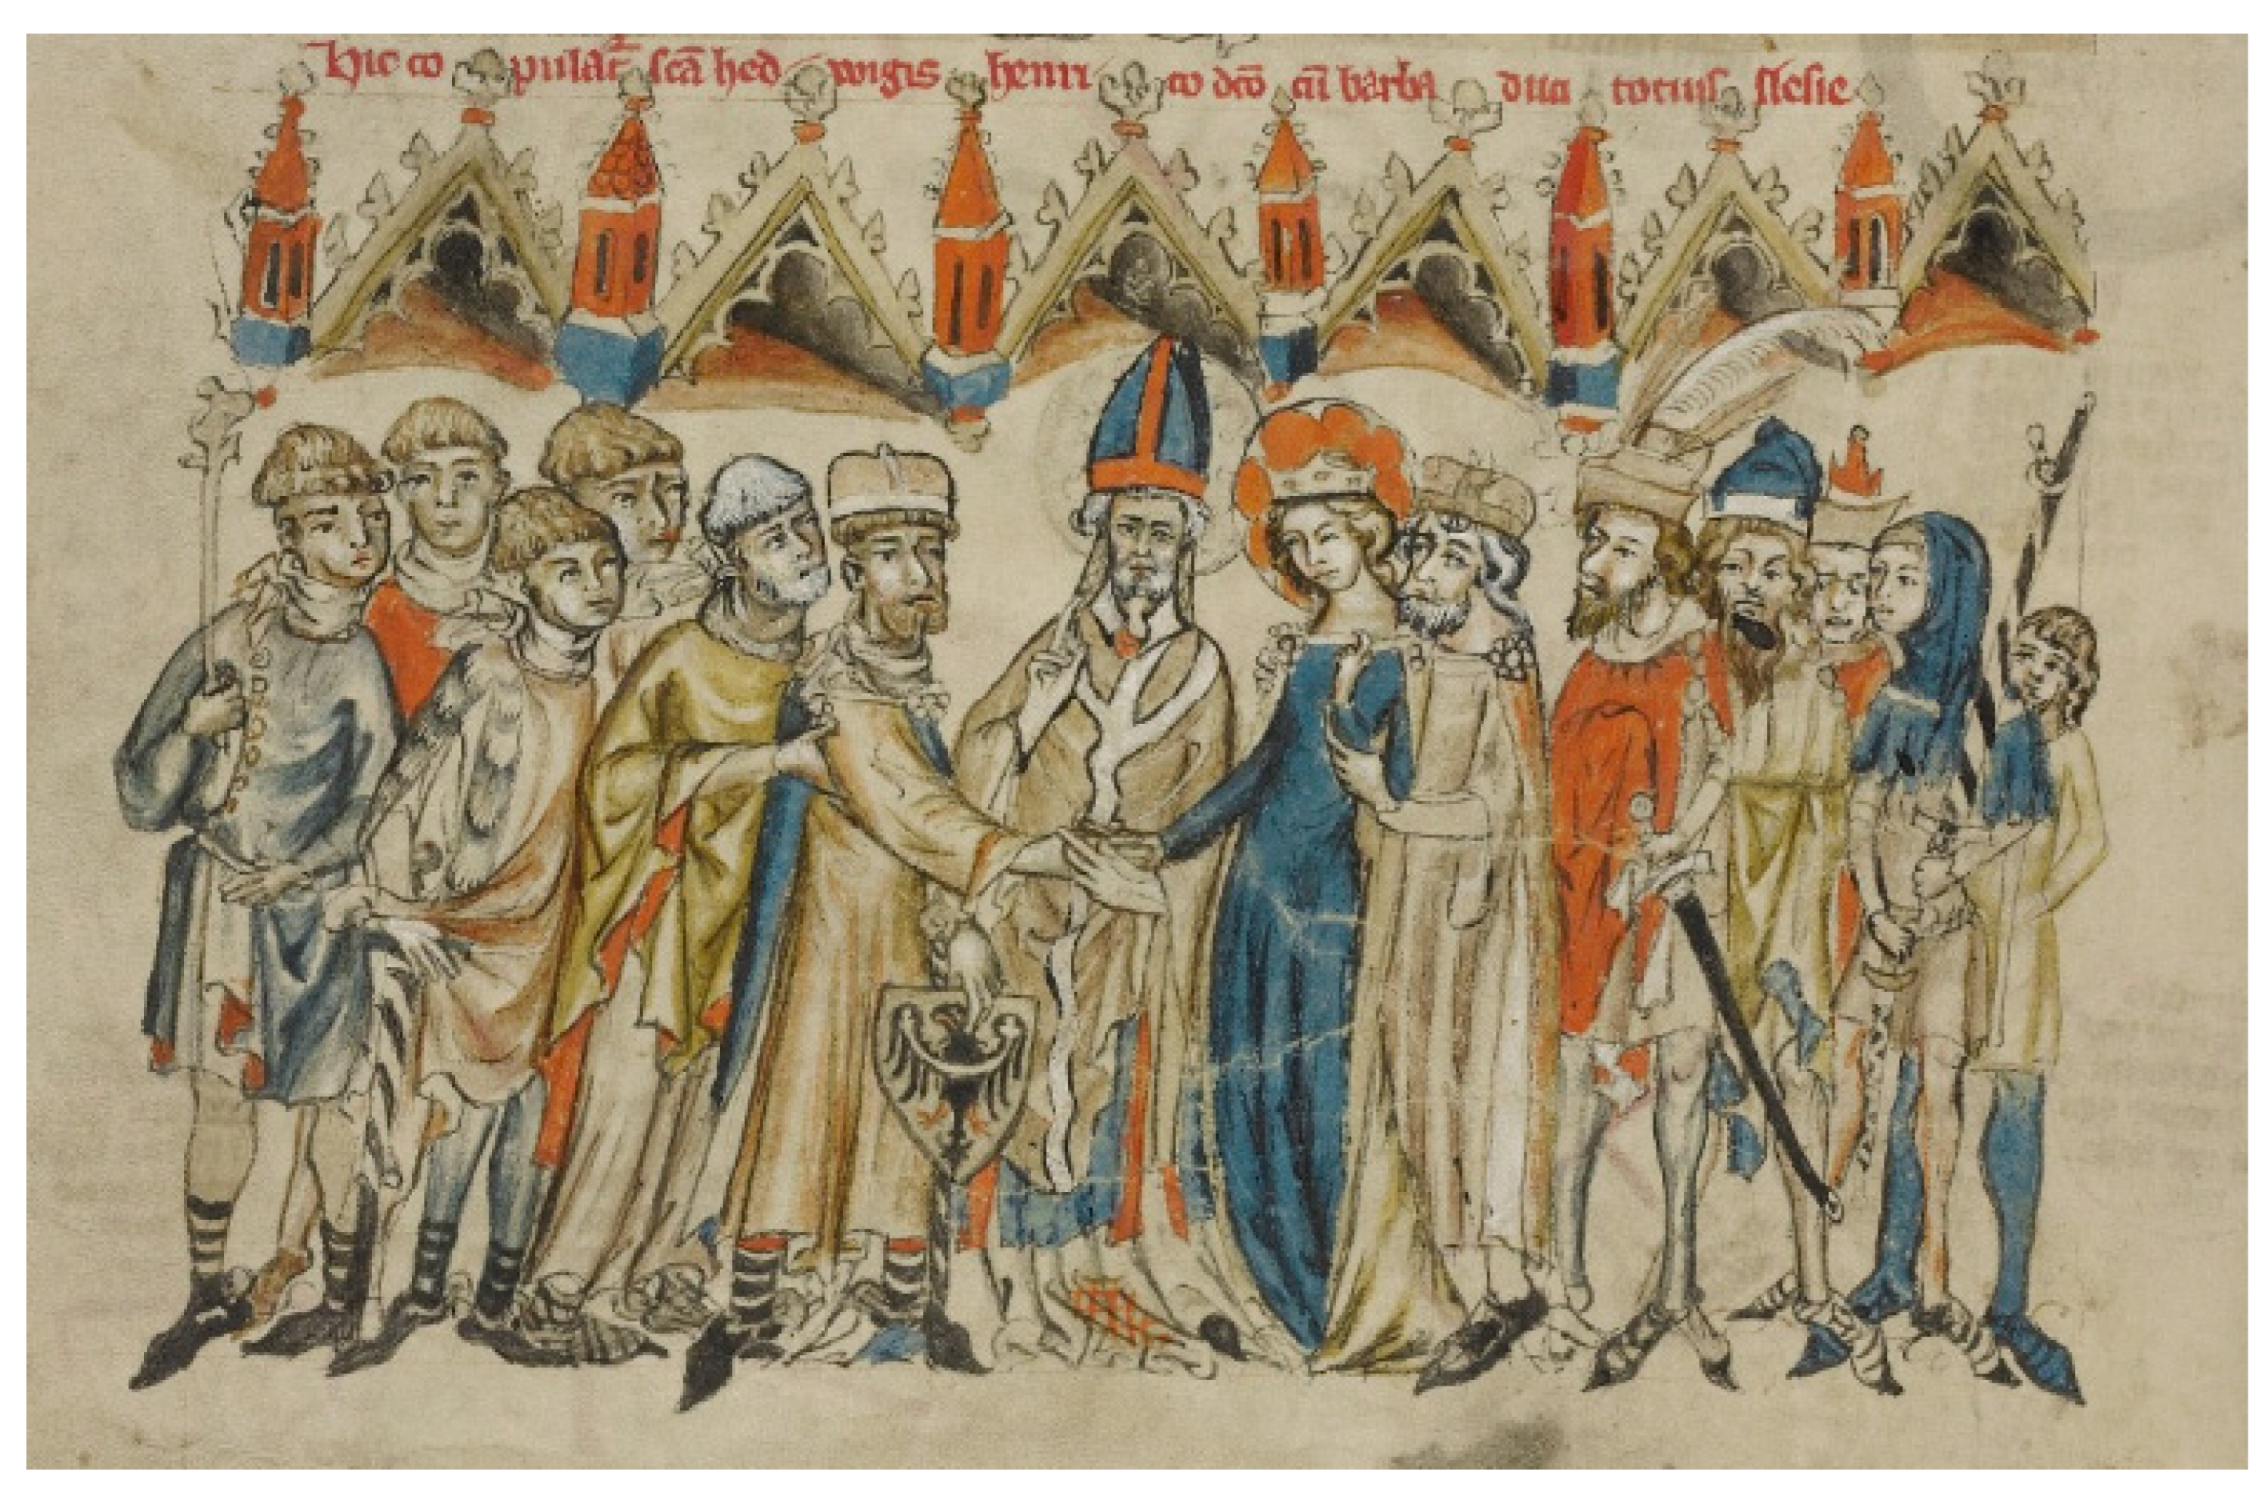 Hic co pulat᷑ scā hed wigis henri co dc̄o cū barba duci totius slesie